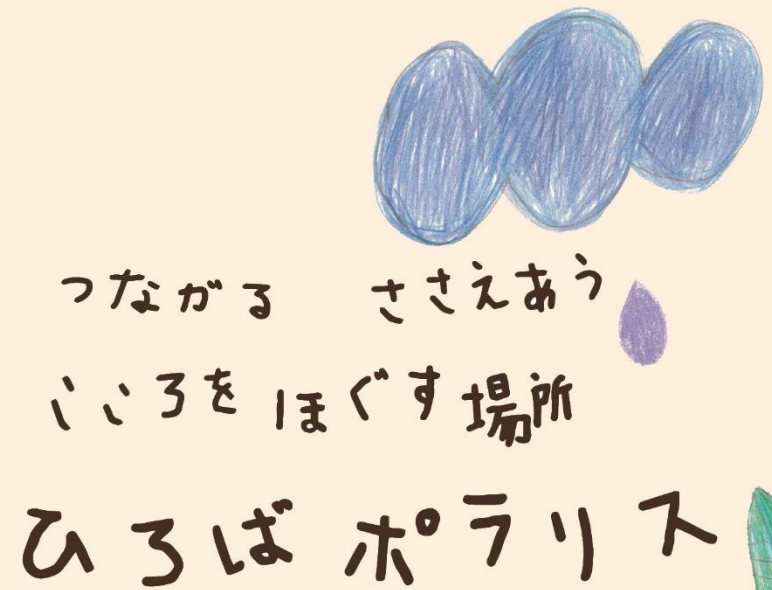 つながる ささえあう
こころをほぐす場所
ひろば ポラリス